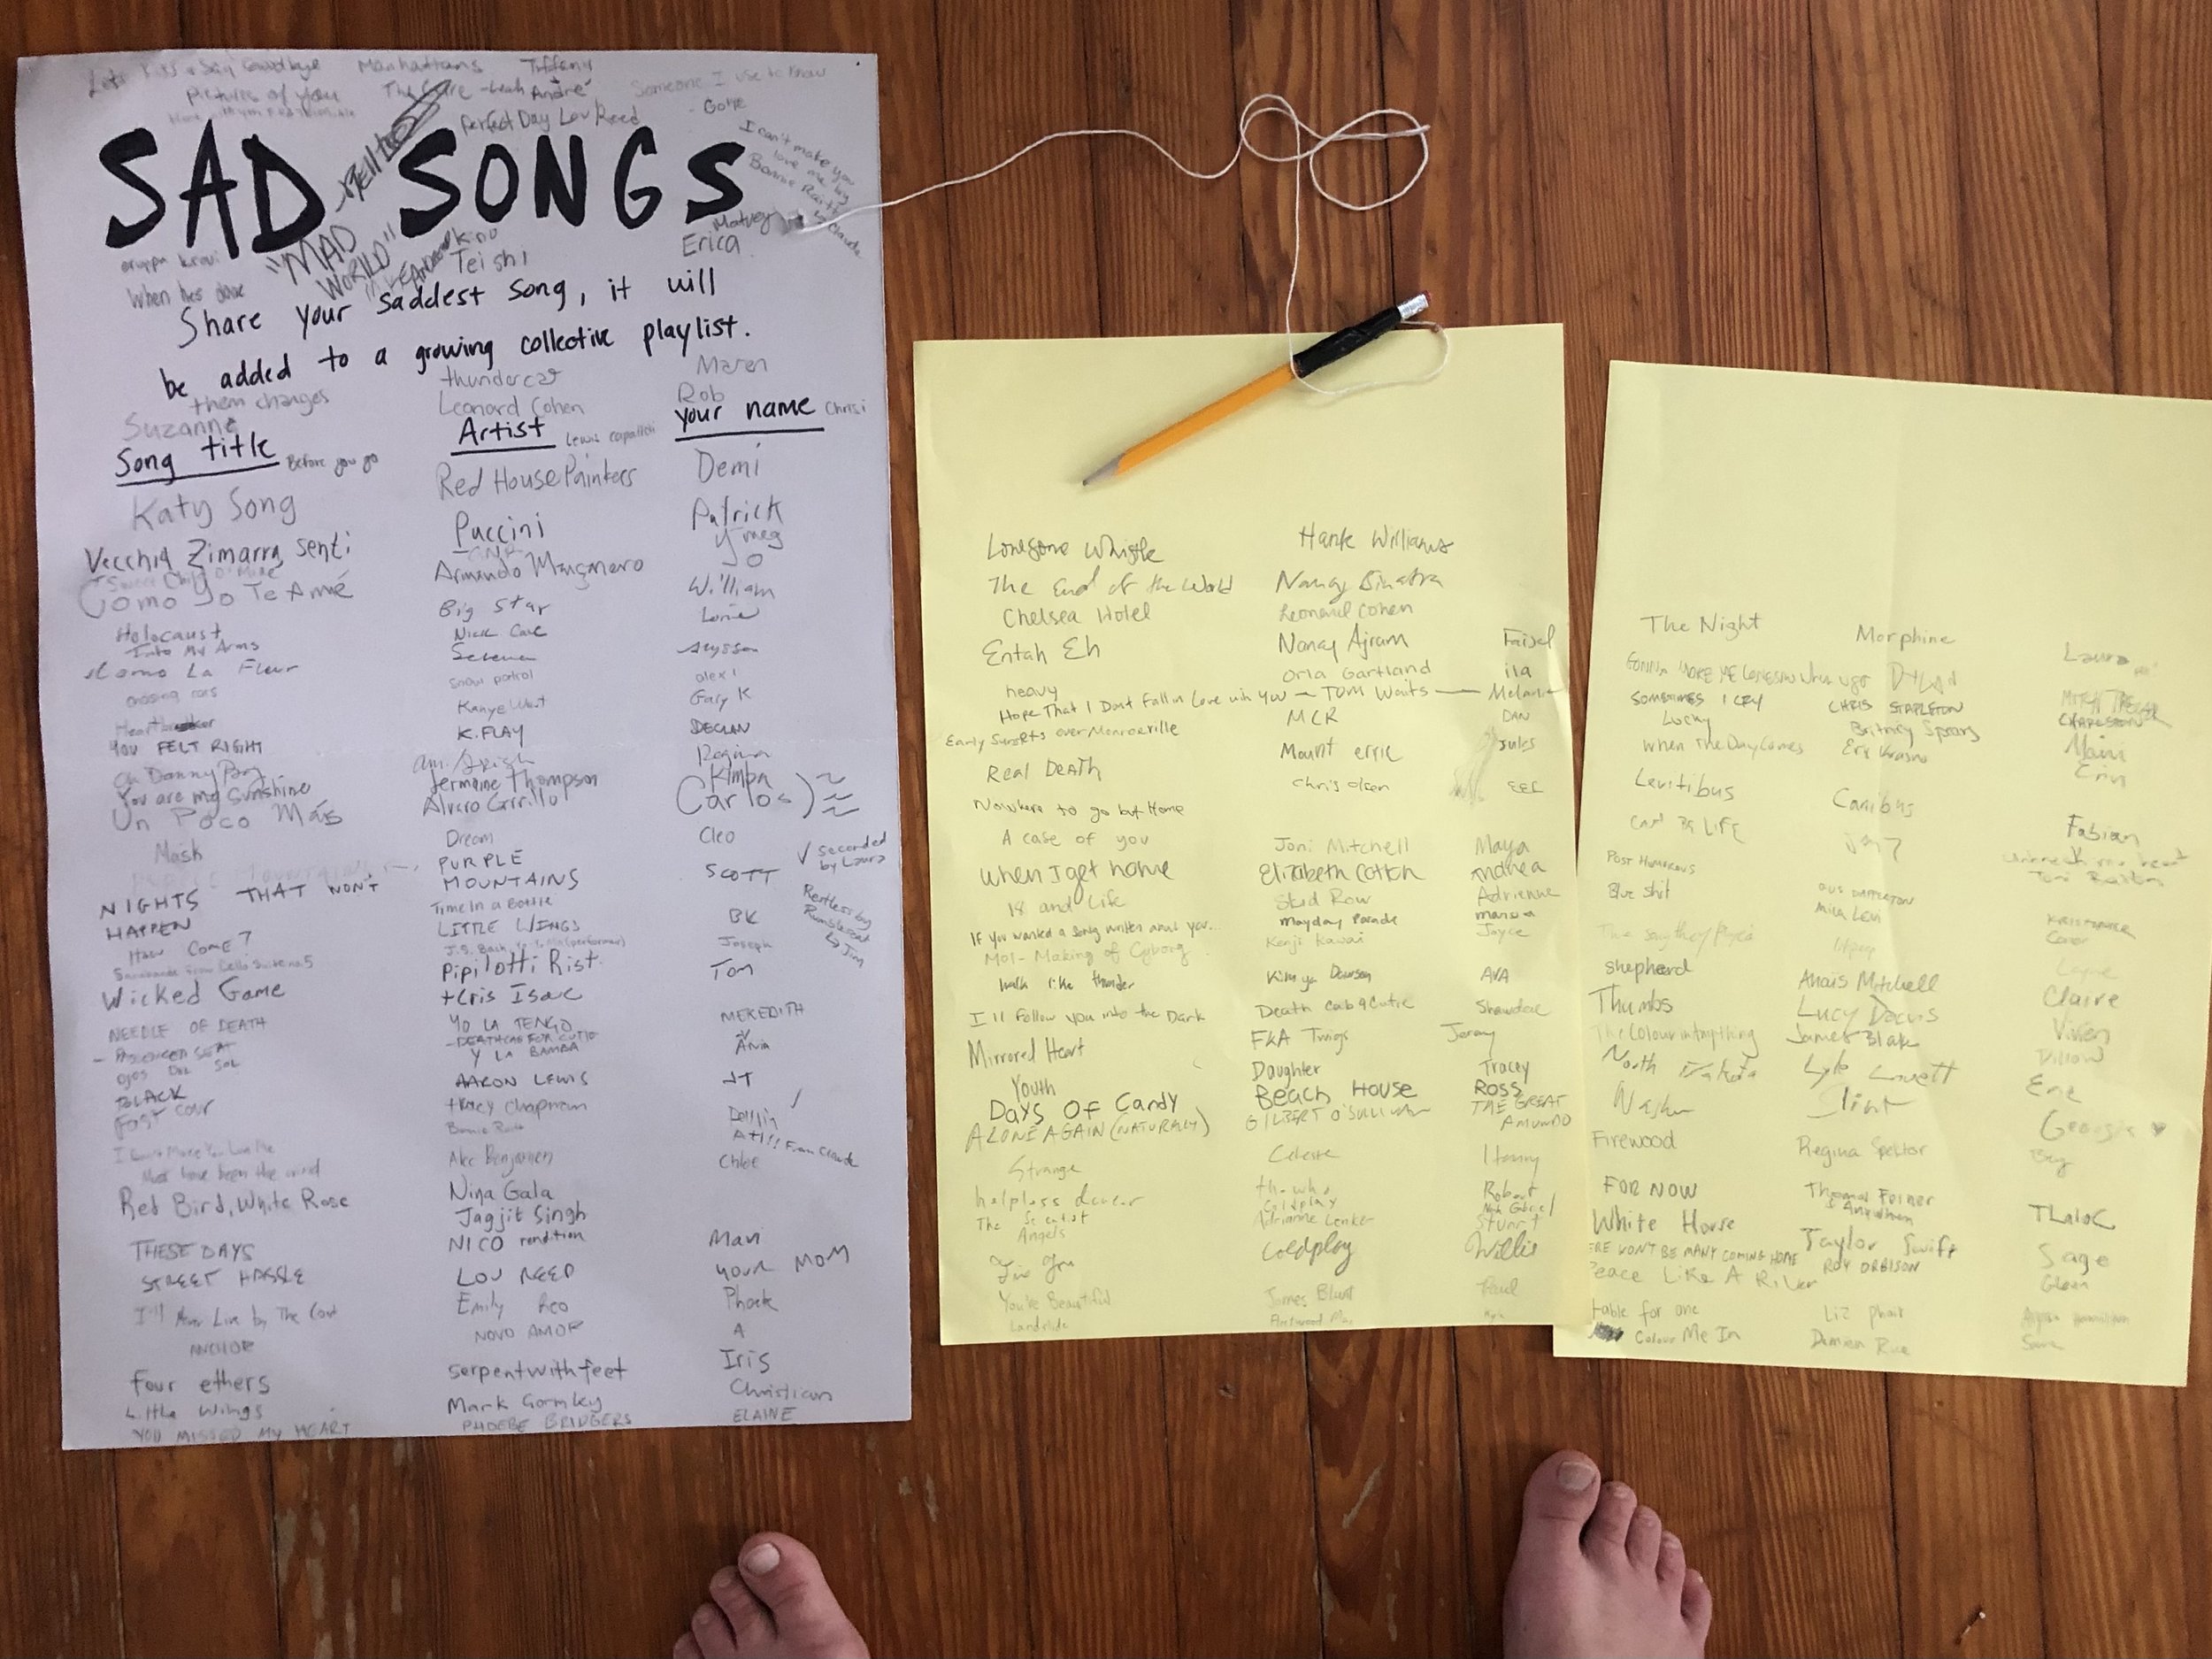 Lets Kiss & Say Goodbye Manhattans Tiffany
Pictures of you The Cure -Leah André Someone I use to know
Perfect Day Lou Reed - Gotye
SAD SONGS
I can't make you
love me by
Bonnie Raitt
Claude
"MAD
WORLD"
Matvey
gruppa krovi Kino Erica
When hes done Teishi
Share your saddest song, it will
be added to a growing collective playlist.
them changes thundercat Maren
Suzanne Leonard Cohen Rob
Song title Artist your name
Before you go Lewis capaldi Chrisi
Katy Song Red House Painters Demi
Vecchia Zimarra, senti Puccini Patrick
Sweet Child O' Mine GNR Ymeg
Como Yo Te Amé Armando Manzanero Jo
Holocaust Big Star William
Into My Arms Nick Cave
Como La Fleur Selena Alyssa
chasing cars snow patrol alexi
Heartbreaker Kanye West Gary K
YOU FELT RIGHT K.FLAY DECLAN
Oh Danny Boy Regina
You are my Sunshine Jermaine Thompson Kimba
Un Poco Más Alvaro Carrillo Carlos
Mask Dream Cleo
NIGHTS THAT WON'T HAPPEN PURPLE MOUNTAINS SCOTT ✓ seconded by Laura
Time In a Bottle
How Come? LITTLE WINGS BK
Restless by
Jim
Sarabande from Cello Suite no 5 J.S. Bach, Yo Yo Ma (performer) Joseph
Wicked Game Pipilotti Rist Tom
+ Cris Isac
NEEDLE OF DEATH YO LA TENGO MEREDITH
- PASSENGER SEAT - DEATHCAB FOR CUTIE
Ojos Del Sol Y LA BAMBA
BLACK AARON LEWIS JT
fast car tracy chapman
I Can't Make You Love Me Bonnie Raitt Ati!!! From Claude
Must have been the wind Alec Benjamin Chloe
Red Bird, White Rose Nina Gala
Jagjit Singh
THESE DAYS NICO rendition Mari
STREET HASSLE LOU REED YOUR MOM
I'll Never Live by The Emily Reo Phoebe
ANCHOR NOVO AMOR A
four ethers serpentwithfeet Iris
Little Wings Mark Gormley Christian
YOU MISSED MY HEART PHOEBE BRIDGERS ELAINE
Lonesome Whistle Hank Williams
The End of the World Nancy Sinatra
Chelsea Hotel Leonard Cohen
Entah Eh Nancy Ajram Faisel
heavy Orla Gartland ila
Hope That I Dont Fall in Love with You - TOM Waits - Melanie
Early Sunsets over Monroeville MCR DAN
Real DEATH Mount errie Jules
Nowhere to go but Home Chris Olsen EEC
A case of you Joni Mitchell Maya
when I get home Elizabeth Cotton Andrea
18 and Life Skid Row Adrienne
If you wanted a song written about you... mayday parade marisa
Mol- Making of Cyborg Kenji Kawai Joyce
walk like thunder Kimya Dawson AVA
I'll follow you into the Dark Death Cab 4 Cutie
Mirrored Heart FKA Twigs Jeremy
Youth Daughter Tracey
DAYS OF CANDY BEACH HOUSE ROSS
ALONE AGAIN (NATURALLY) GILBERT O'SULLIVAN THE GREAT AMUNDO
Strange Celeste Henry
helpless dancer the who Robert
The Scientist Coldplay Gabriel
Angels Adrianne Lenker Stuart
Fix You Coldplay Willis
You're Beautiful James Blunt Paul
Landslide Fleetwood Mac
The Night Morphine Laura
GONNA MAKE ME LONESOME WHEN U GO DYLAN
SOMETIMES I CRY CHRIS STAPLETON CHARLESTON
Lucky Britney Spears Maini
When The Day Comes Eric Krasno Erin
Levitibus Canibus Fabian
Post Humorous GUS DAPPERTON KRISTOPHER
Blue shit Mica Levi Conor
The song they play lil peep
shepherd Anais Mitchell Claire
Thumbs Lucy Dacus Vivien
The Colour in Anything James Blake Dillon
North Dakota Lyle Lovett
Washer Slint Georgia
Firewood Regina Spektor
FOR NOW TLaloC
White Horse Taylor Swift Sage
ERE WON'T BE MANY COMING HOME ROY ORBISON Glenn
Peace Like A River
table for one Liz phair
Colour Me In Damien Rice